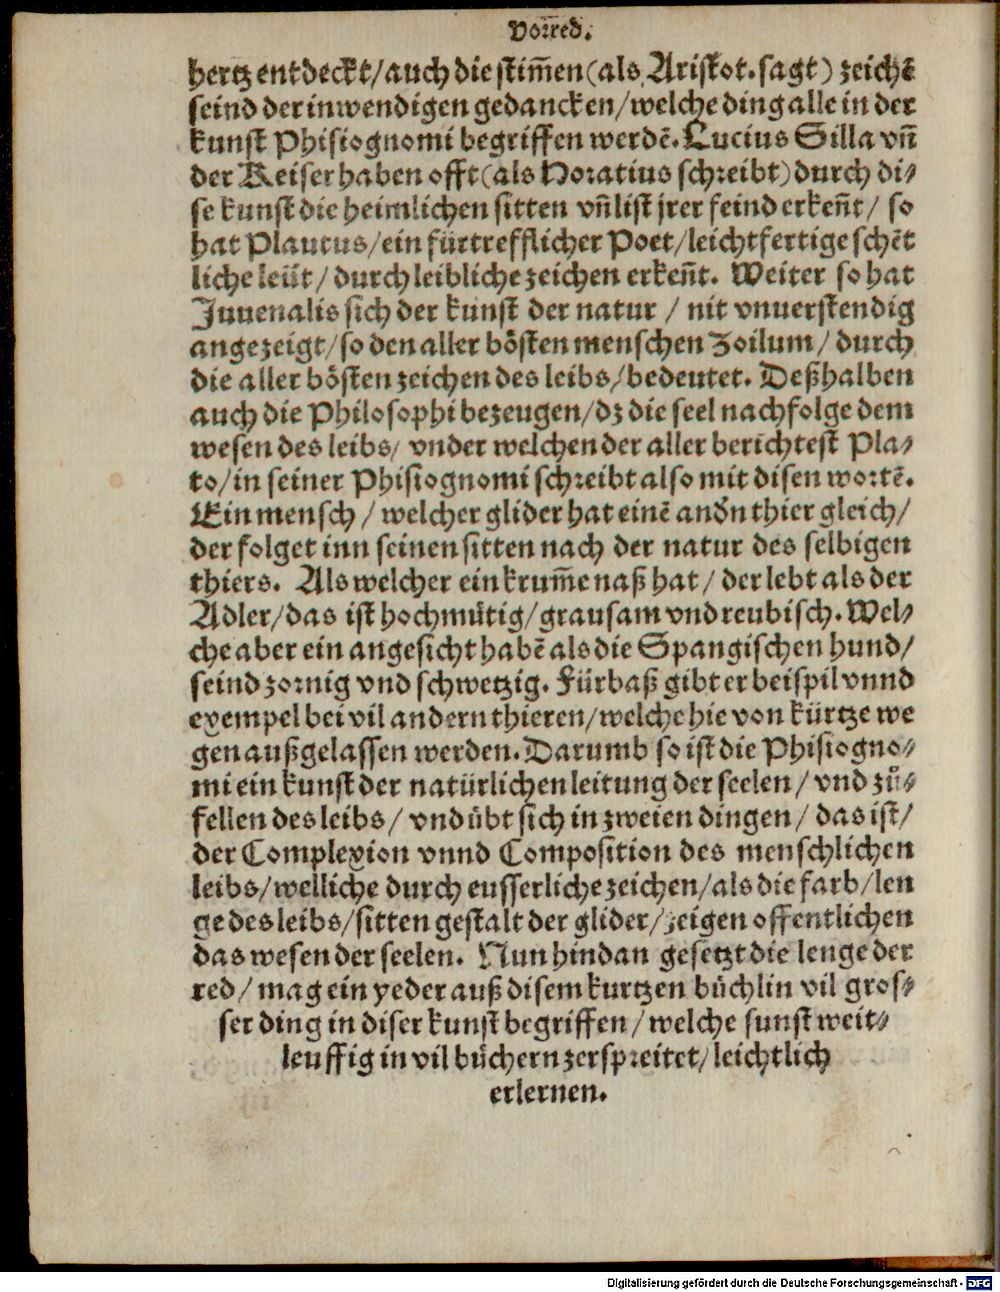 Vorꝛed.
hertz entdeckt/auch die stim̄en(als Aristot.sagt) zeichē
seind der inwendigen gedancken/welche ding alle in der
kunst Phisiognomi begriffen werdē. Lucius Silla vñ
der Keiser haben offt(als Horatius schreibt)durch di⸗
se kunst die heimlichen sitten vñ list jrer feind erkeñt/ so
hat Plautus/ein fürtrefflicher Poet/leichtfertige schēt
liche leüt/ durch leibliche zeichen erkeñt. Weiter so hat
Juuenalis sich der kunst der natur / nit vnuerstendig
angezeigt/so den aller bösten menschen Zoilum/ durch
die aller bösten zeichen des leibs/bedeutet. Deßhalben
auch die Philosophi bezeugen/dz die seel nachfolge dem
wesen des leibs/ vnder welchen der aller berichtest Pla⸗
to/in seiner Phisiognomi schreibt also mit disen wortē.
Ein mensch / welcher glider hat einē andn̄ thier gleich/
der folget inn seinen sitten nach der natur des selbigen
thiers. Als welcher ein krum̄e naß hat/ der lebt als der
Adler/das ist hochmütig/grausam vnd reubisch. Wel⸗
che aber ein angesicht habē als die Spangischen hund/
seind zornig vnd schwetzig. Fürbaß gibt er beispil vnnd
exempel bei vil andern thieren/welche hie von kürtze we
gen außgelassen werden. Darumb so ist die Phisiogno⸗
mi ein kunst der natürlichen leitung der seelen/ vnd zuͦ⸗
fellen des leibs/ vnd übt sich in zweien dingen/ das ist/
der Complexion vnnd Composition des menschlichen
leibs/welliche durch eusserliche zeichen/als die farb/len
ge des leibs/sitten gestalt der glider/zeigen offentlichen
das wesen der seelen. Nun hindan gesetzt die lenge der
red/ mag ein yeder auß disem kurtzen büchlin vil gros⸗
ser ding in diser kunst begriffen/welche sunst weit⸗
leuffig in vil büchern zerspreitet/leichtlich
erlernen.
Digitalisierung gefördert durch die Deutsche Forschungsgemeinschaft - DFG